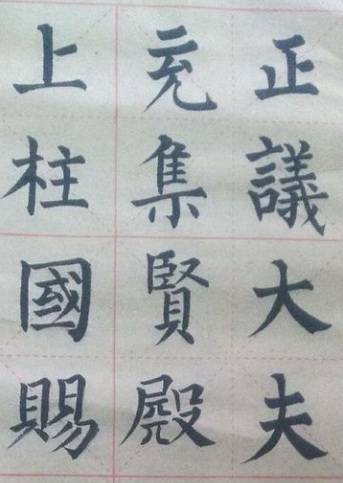 正議大夫
充集賢殿
上柱國賜